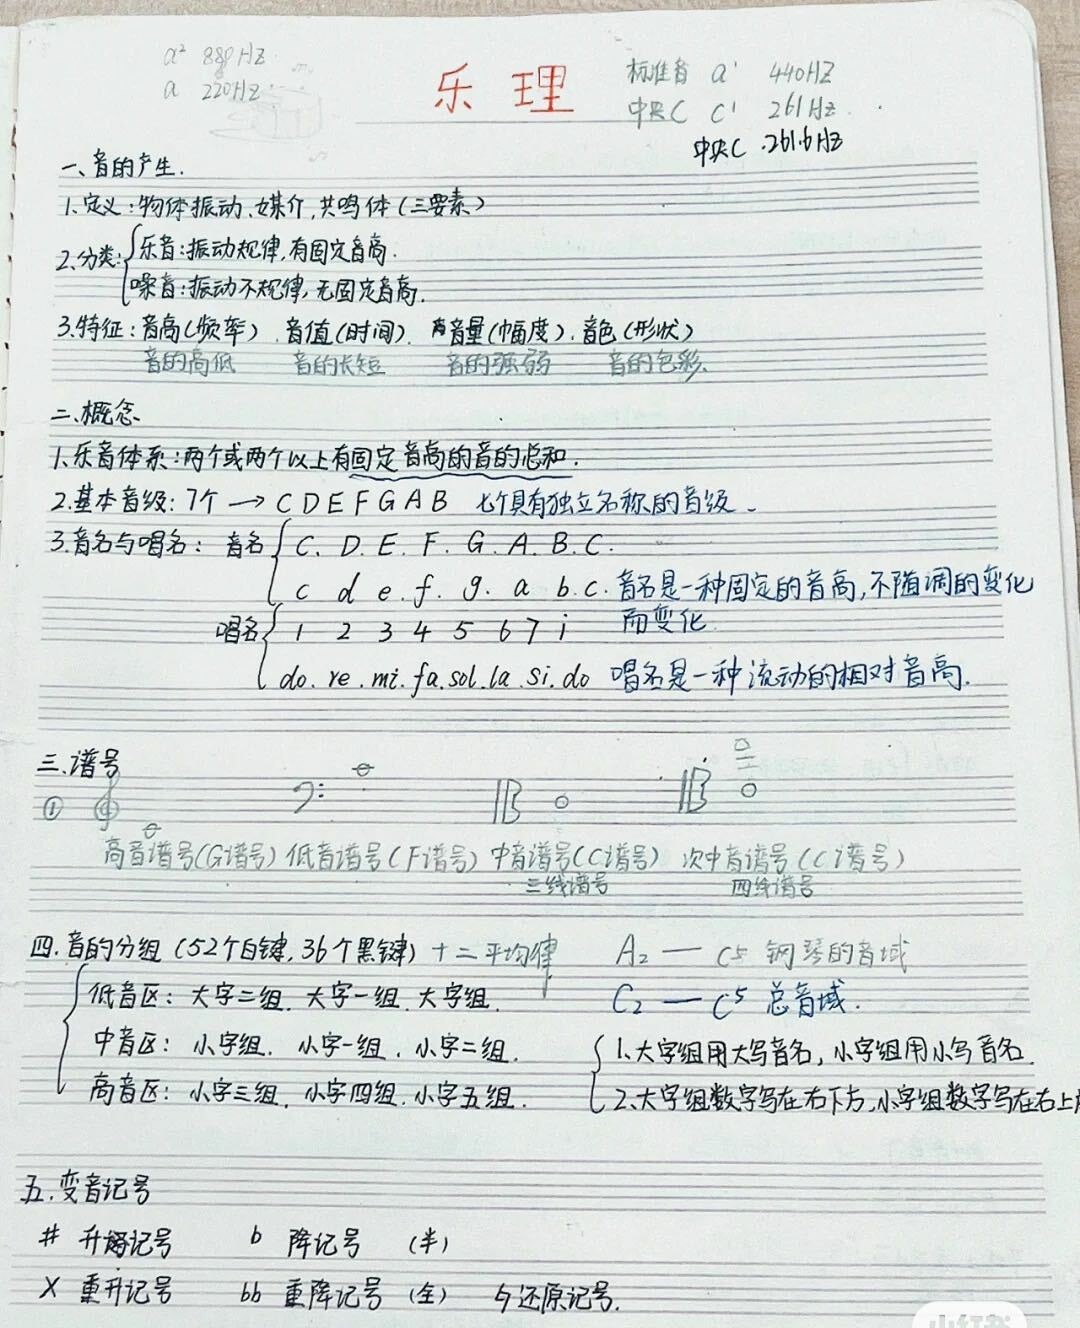 a² 880HZ
a 220HZ
乐理
标准音 a¹ 440HZ
中央C C¹ 261HZ
中央C 261.6HZ
一、音的产生.
1、定义:物体振动、媒介,共鸣体(三要素)
2、分类:
乐音:振动规律,有固定音高.
噪音:振动不规律,无固定音高.
3、特征:音高(频率)、音值(时间)、音量(幅度)、音色(形状)
音的高低 音的长短 音的强弱 音的色彩.
二、概念
1、乐音体系:两个或两个以上有固定音高的音的总和.
2、基本音级:7个→CDEFGAB 七个具有独立名称的音级.
3、音名与唱名:音名 C. D. E. F. G. A. B. C.
c d e. f. g. a b. c. 音名是一种固定的音高,不随调的变化
而变化.
唱名 1 2 3 4 5 6 7 i
do. re. mi. fa. sol. la. si. do 唱名是一种流动的相对音高.
三、谱号
①
高音谱号(G谱号) 低音谱号(F谱号) 中音谱号(C谱号) 次中音谱号(C谱号)
三线谱号 四线谱号
四、音的分组(52个白键,36个黑键)十二平均律 A₂—C⁵ 钢琴的音域
低音区:大字二组、大字一组、大字组. C₂—C⁵ 总音域.
中音区:小字组、小字一组、小字二组. 1、大字组用大写音名,小字组用小写音名.
高音区:小字三组、小字四组、小字五组. 2、大字组数字写在右下方,小字组数字写在右上
五、变音记号
# 升记号 b 降记号 (半)
X 重升记号 bb 重降记号 (全) ♮还原记号.
小红书